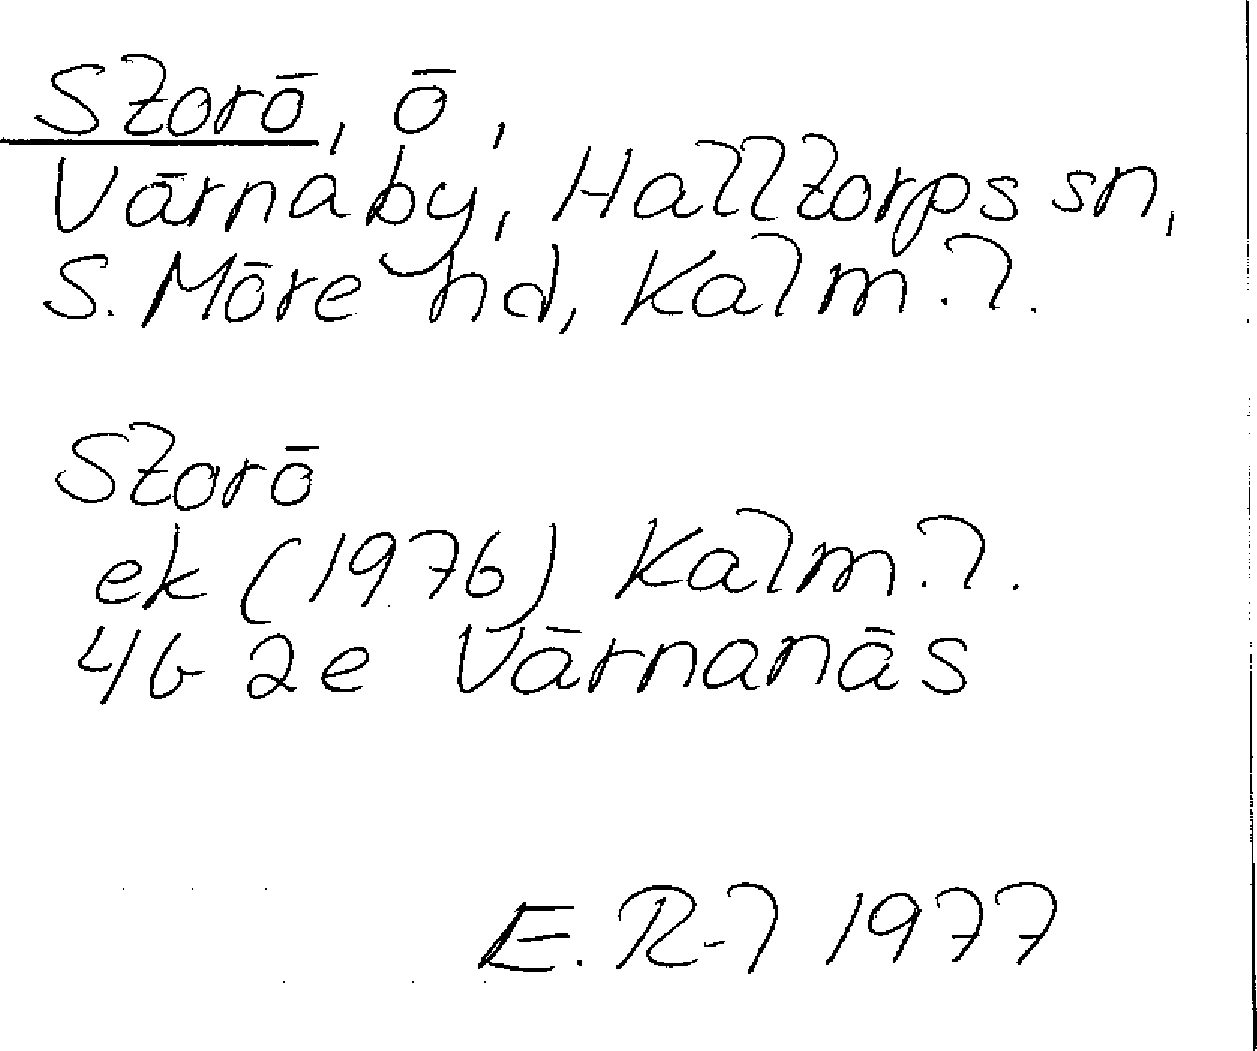 Storö, ö,
Värnaby, Halltorps sn,
S. Möre hd, Kalm. l.
Storö
ek (1976) Kalm. l.
4G 2e Värnanäs
E. R-l 1977